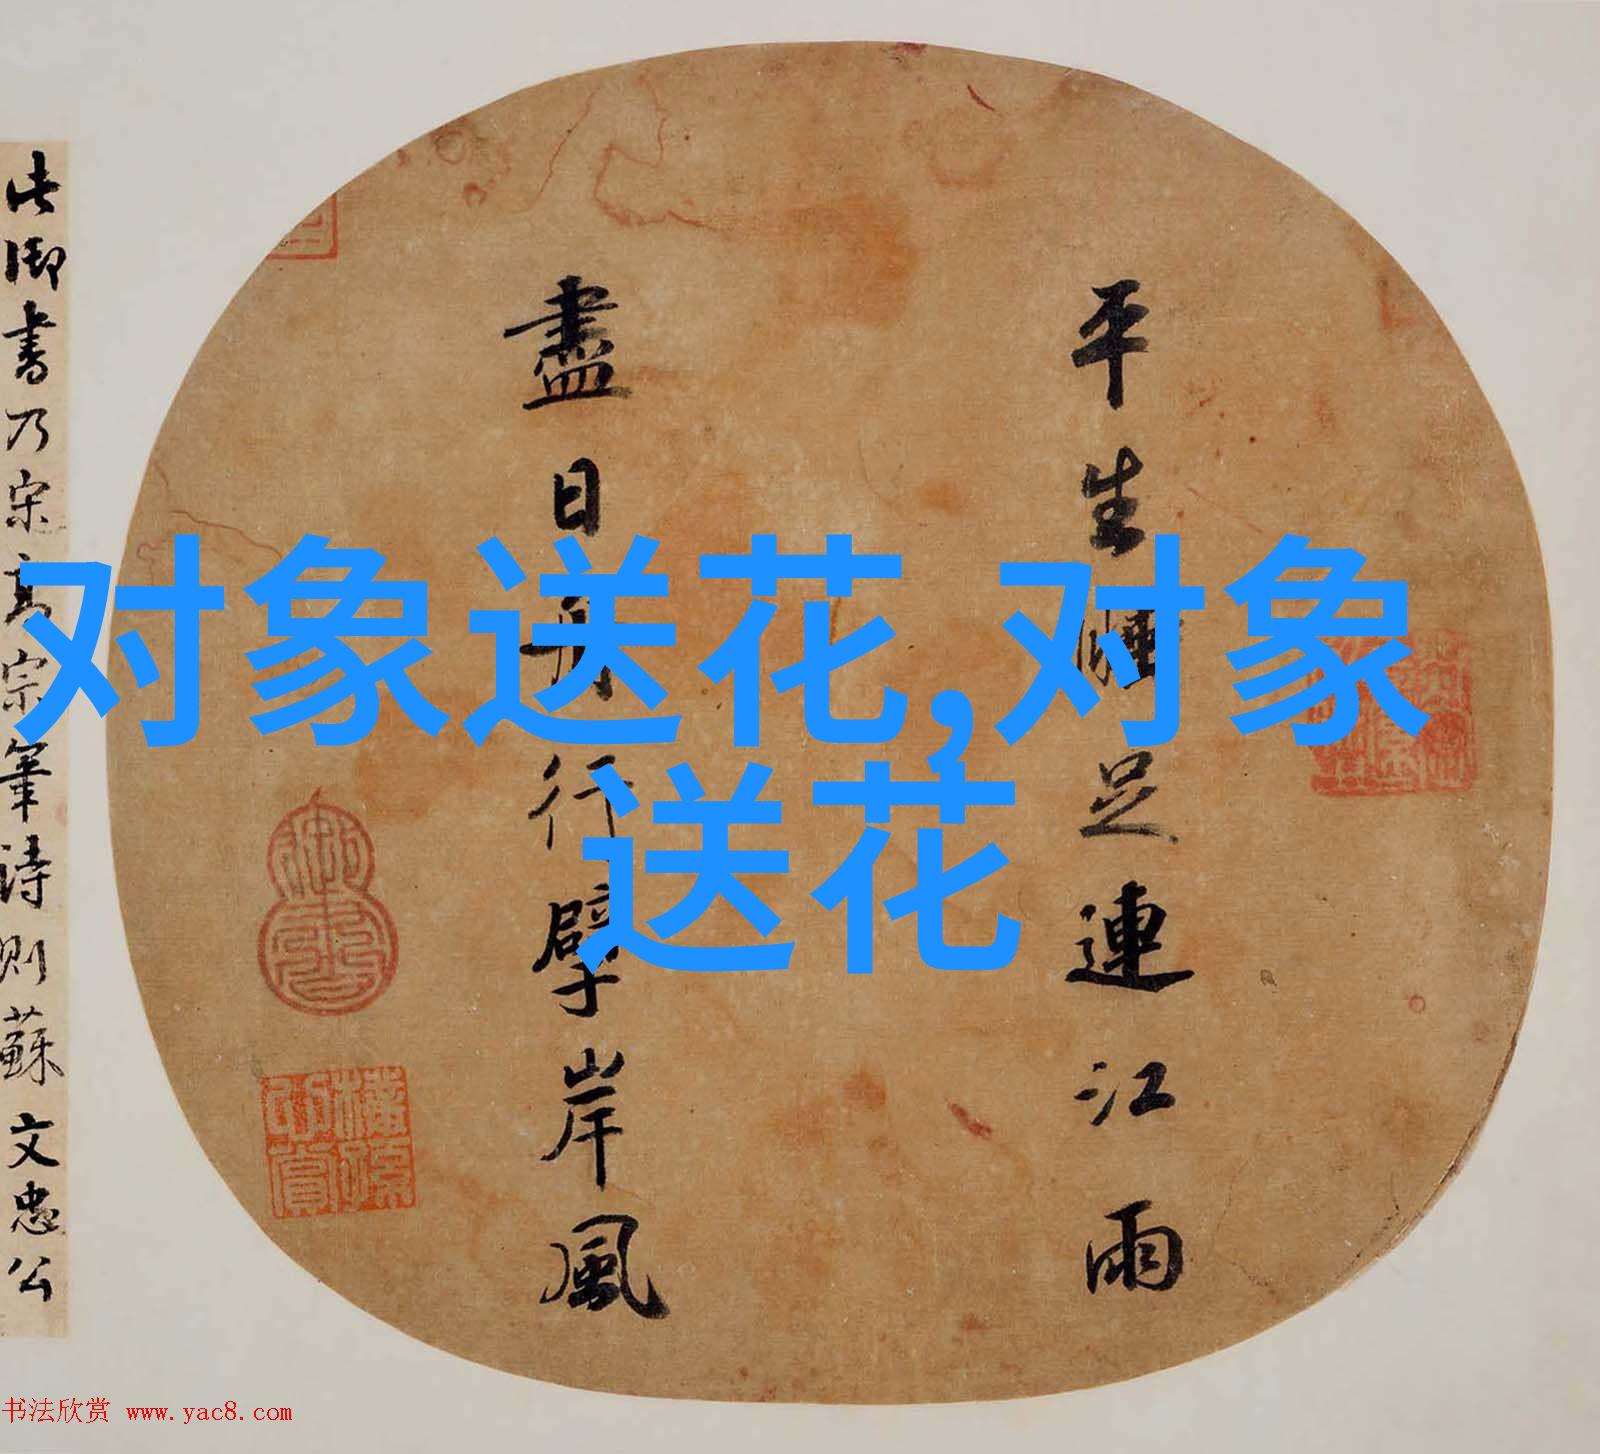 平生睡足連江雨
盡日舟行擘岸風
此御書乃宋高宗筆詩則蘇文忠公
对象送花,对象
送花
书法欣赏 www.yac8.com